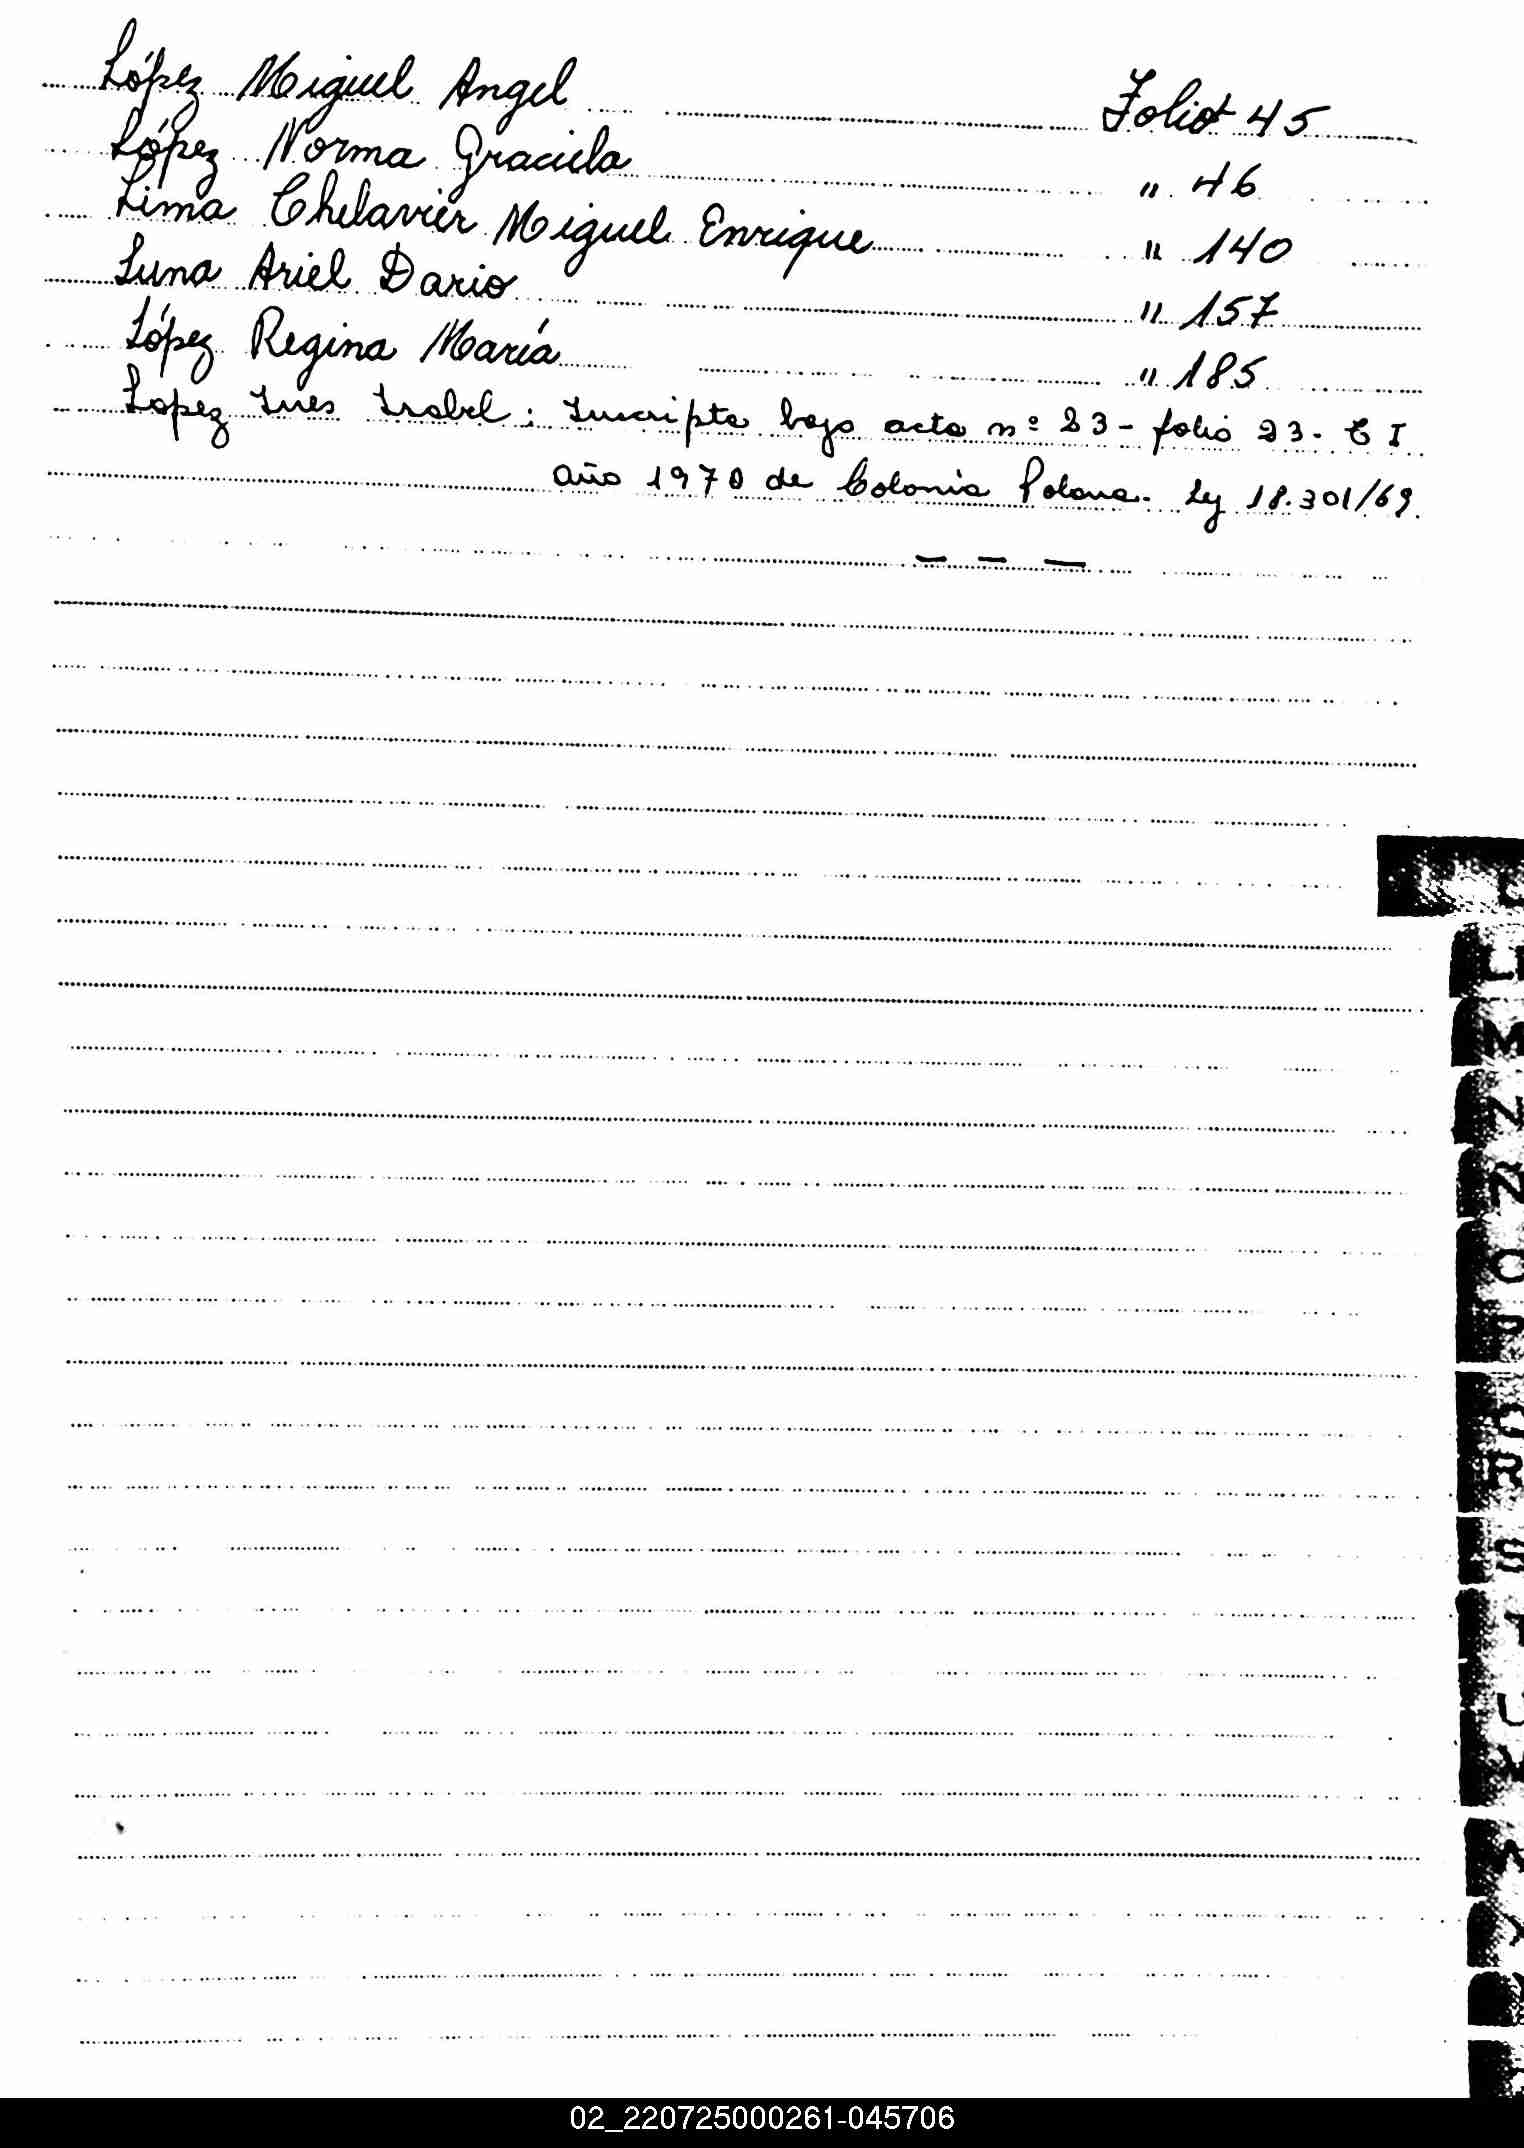 López Miguel Angel Folio 45
López Norma Graciela " 46
Lima Chelavier Miguel Enrique " 140
Luna Ariel Dario " 157
López Regina María " 185
Lopez Ines Isabel: Inscripta bajo acta nº 23 - folio 23. T I
año 1970 de Colonia Polana. Ley 18.301/69.
L
LL
M
N
Ñ
O
P
Q
R
S
T
U
V
W
X
Y
02_220725000261-045706